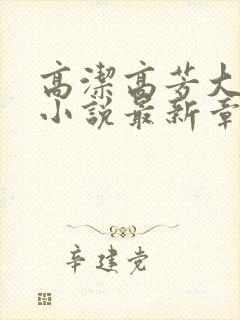 高潔高芳大
小說最新章
辛建党